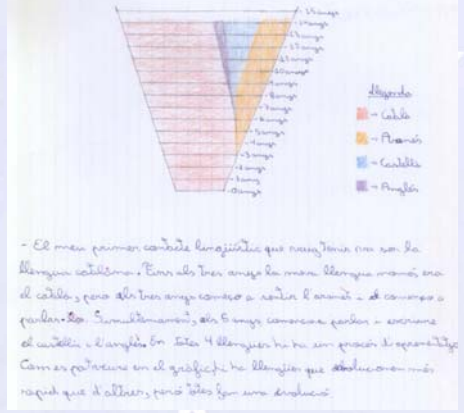 14 anys
13 anys
12 anys
11 anys
10 anys
9 anys
8 anys
7 anys
6 anys
5 anys
4 anys
3 anys
2 anys
1 any
0 anys
Llegenda
→ Català
→ Aranès
→ Castellà
→ Anglès
- El meu primer contacte lingüístic que vaig tenir va ser la
llengua catalana. Fins als tres anys la meva llengua només era
el català, però als tres anys començo a sentir l'aranès i començo a
parlar-lo. Simultàniament, als 6 anys començo a parlar i escriure
el castellà i l'anglès. En totes 4 llengües hi ha un procés d'aprenentatge.
Com es pot veure en el gràfic, hi ha llengües que evolucionen més
ràpid que d'altres, però totes fan una evolució.